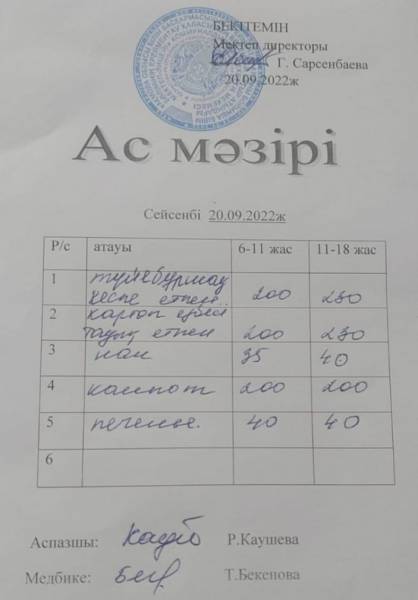 БЕКІТЕМІН
Мектеп директоры
Г. Сарсенбаева
20.09.2022ж
Ас мәзірі
Сейсенбі 20.09.2022ж
Р/с атауы 6-11 жас 11-18 жас
1
кеспе етпен 200 230
2 картоп езбесі
тауық етпен 200 230
3 нан 35 40
4 компот 200 200
5 печенье. 40 40
6
Аспазшы: Р.Каушева
Медбике: Т.Бекенова